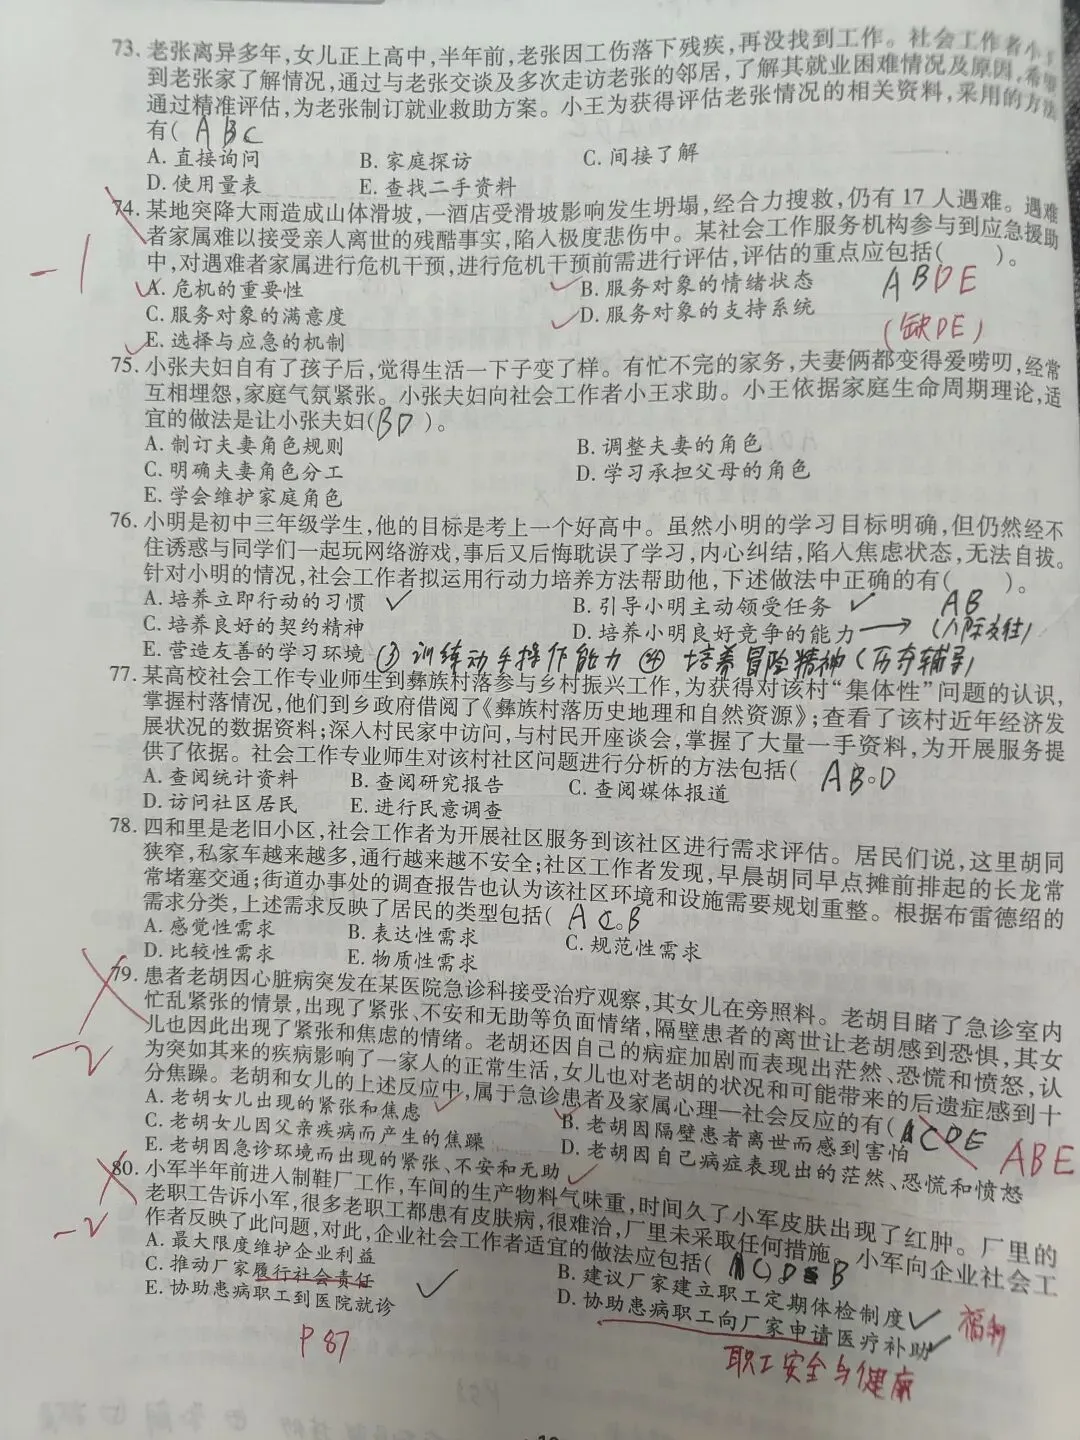 73. 老张离异多年,女儿正上高中,半年前,老张因工伤落下残疾,再没找到工作。社会工作者小王
到老张家了解情况,通过与老张交谈及多次走访老张的邻居,了解其就业困难情况及原因,希望
通过精准评估,为老张制订就业救助方案。小王为获得评估老张情况的相关资料,采用的方法
有( ABC
A. 直接询问 B. 家庭探访 C. 间接了解
D. 使用量表 E. 查找二手资料
74. 某地突降大雨造成山体滑坡,一酒店受滑坡影响发生坍塌,经合力搜救,仍有 17 人遇难。遇难
者家属难以接受亲人离世的残酷事实,陷入极度悲伤中。某社会工作服务机构参与到应急援助
中,对遇难者家属进行危机干预,进行危机干预前需进行评估,评估的重点应包括( )。
-1
A. 危机的重要性 B. 服务对象的情绪状态 ABDE
C. 服务对象的满意度 D. 服务对象的支持系统 (缺DE)
E. 选择与应急的机制
75. 小张夫妇自有了孩子后,觉得生活一下子变了样。有忙不完的家务,夫妻俩都变得爱唠叨,经常
互相埋怨,家庭气氛紧张。小张夫妇向社会工作者小王求助。小王依据家庭生命周期理论,适
宜的做法是让小张夫妇( BD )。
A. 制订夫妻角色规则 B. 调整夫妻的角色
C. 明确夫妻角色分工 D. 学习承担父母的角色
E. 学会维护家庭角色
76. 小明是初中三年级学生,他的目标是考上一个好高中。虽然小明的学习目标明确,但仍然经不
住诱惑与同学们一起玩网络游戏,事后又后悔耽误了学习,内心纠结,陷入焦虑状态,无法自拔。
针对小明的情况,社会工作者拟运用行动力培养方法帮助他,下述做法中正确的有( )。
A. 培养立即行动的习惯 ✓ B. 引导小明主动领受任务 ✓ AB
C. 培养良好的契约精神 D. 培养小明良好竞争的能力 → (人际交往)
E. 营造友善的学习环境 ③ 训练动手操作能力 ④ 培养冒险精神(历奇辅导)
77. 某高校社会工作专业师生到彝族村落参与乡村振兴工作,为获得对该村“集体性”问题的认识,
掌握村落情况,他们到乡政府借阅了《彝族村落历史地理和自然资源》;查看了该村近年经济发
展状况的数据资料;深入村民家中访问,与村民开座谈会,掌握了大量一手资料,为开展服务提
供了依据。社会工作专业师生对该村社区问题进行分析的方法包括( AB。D
A. 查阅统计资料 B. 查阅研究报告 C. 查阅媒体报道
D. 访问社区居民 E. 进行民意调查
78. 四和里是老旧小区,社会工作者为开展社区服务到该社区进行需求评估。居民们说,这里胡同
狭窄,私家车越来越多,通行越来越不安全;社区工作者发现,早晨胡同早点摊前排起的长龙常
常堵塞交通;街道办事处的调查报告也认为该社区环境和设施需要规划重整。根据布雷德绍的
需求分类,上述需求反映了居民的类型包括( AC。B
A. 感觉性需求 B. 表达性需求 C. 规范性需求
D. 比较性需求 E. 物质性需求
79. 患者老胡因心脏病突发在某医院急诊科接受治疗观察,其女儿在旁照料。老胡目睹了急诊室内
忙乱紧张的情景,出现了紧张、不安和无助等负面情绪,隔壁患者的离世让老胡感到恐惧,其女
儿也因此出现了紧张和焦虑的情绪。老胡还因自己的病症加剧而表现出茫然、恐慌和愤怒,认
-2
为突如其来的疾病影响了一家人的正常生活,女儿也对老胡的状况和可能带来的后遗症感到十
分焦躁。老胡和女儿的上述反应中,属于急诊患者及家属心理—社会反应的有( ACDE ABE
A. 老胡女儿出现的紧张和焦虑 B. 老胡因隔壁患者离世而感到害怕
C. 老胡女儿因父亲疾病而产生的焦躁 D. 老胡因自己病症表现出的茫然、恐慌和愤怒
E. 老胡因急诊环境而出现的紧张、不安和无助
80. 小军半年前进入制鞋厂工作,车间的生产物料气味重,时间久了小军皮肤出现了红肿。厂里的
老职工告诉小军,很多老职工都患有皮肤病,很难治,厂里未采取任何措施。小军向企业社会工
-2
作者反映了此问题,对此,企业社会工作者适宜的做法应包括( CD B
A. 最大限度维护企业利益 B. 建议厂家建立职工定期体检制度 ✓
C. 推动厂家履行社会责任 D. 协助患病职工向厂家申请医疗补助 ✓ 福利
E. 协助患病职工到医院就诊 ✓
P87
职工安全与健康